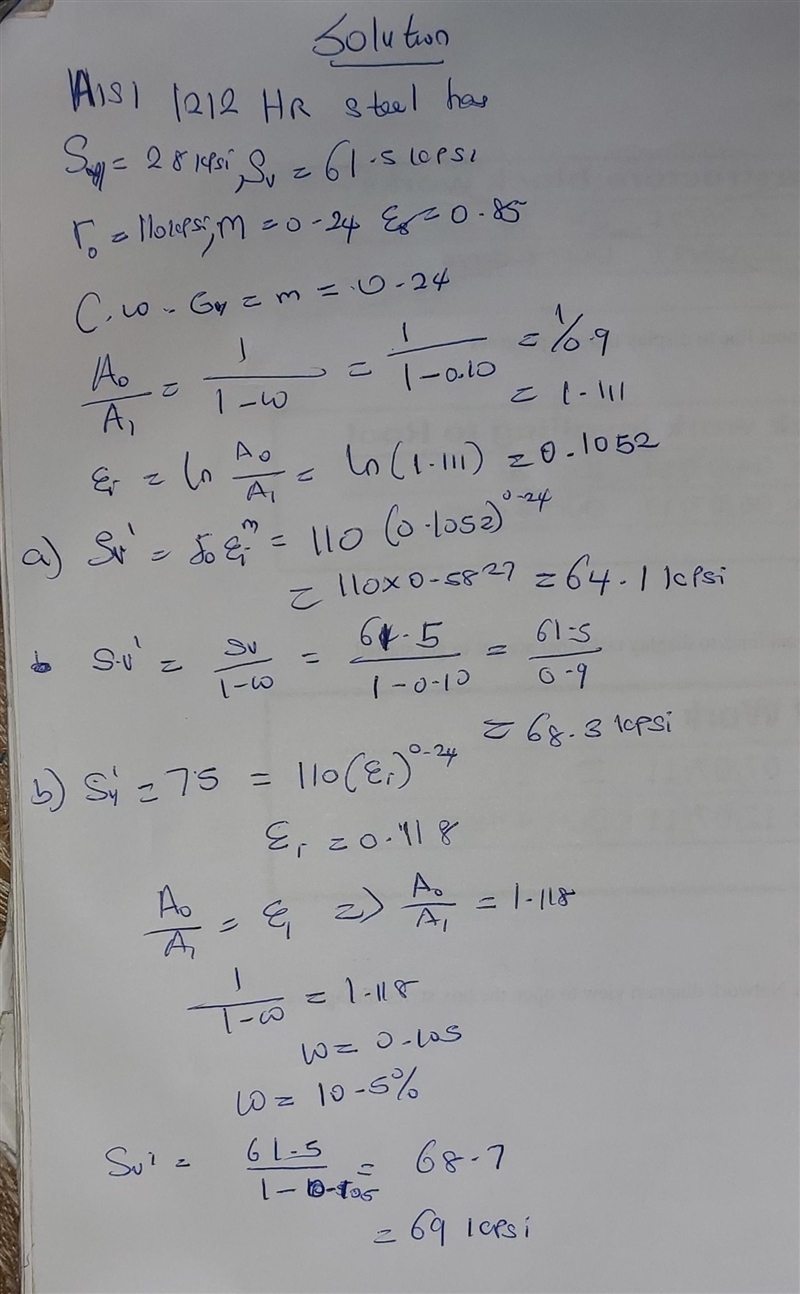 Solution
AISI 1212 HR steel has
Sy = 28 kpsi, Su = 61.5 kpsi
σo = 110 kpsi, m = 0.24 εf = 0.85
C.W - Gy = m = 0.24
A0/A1 = 1/(1-w) = 1/(1-0.10) = 1/0.9
= 1.111
εi = ln A0/A1 = ln(1.111) = 0.1052
a) Sy' = σo εi^m = 110 (0.1052)^0.24
= 110 x 0.5827 = 64.1 kpsi
Su' = Su/(1-w) = 61.5/(1-0.10) = 61.5/0.9
= 68.3 kpsi
b) Sy' = 75 = 110(εi)^0.24
εi = 0.118
A0/A1 = εi => A0/A1 = 1.118
1/(1-w) = 1.118
w = 0.105
w = 10.5%
Su' = 61.5/(1-0.105) = 68.7
= 69 kpsi